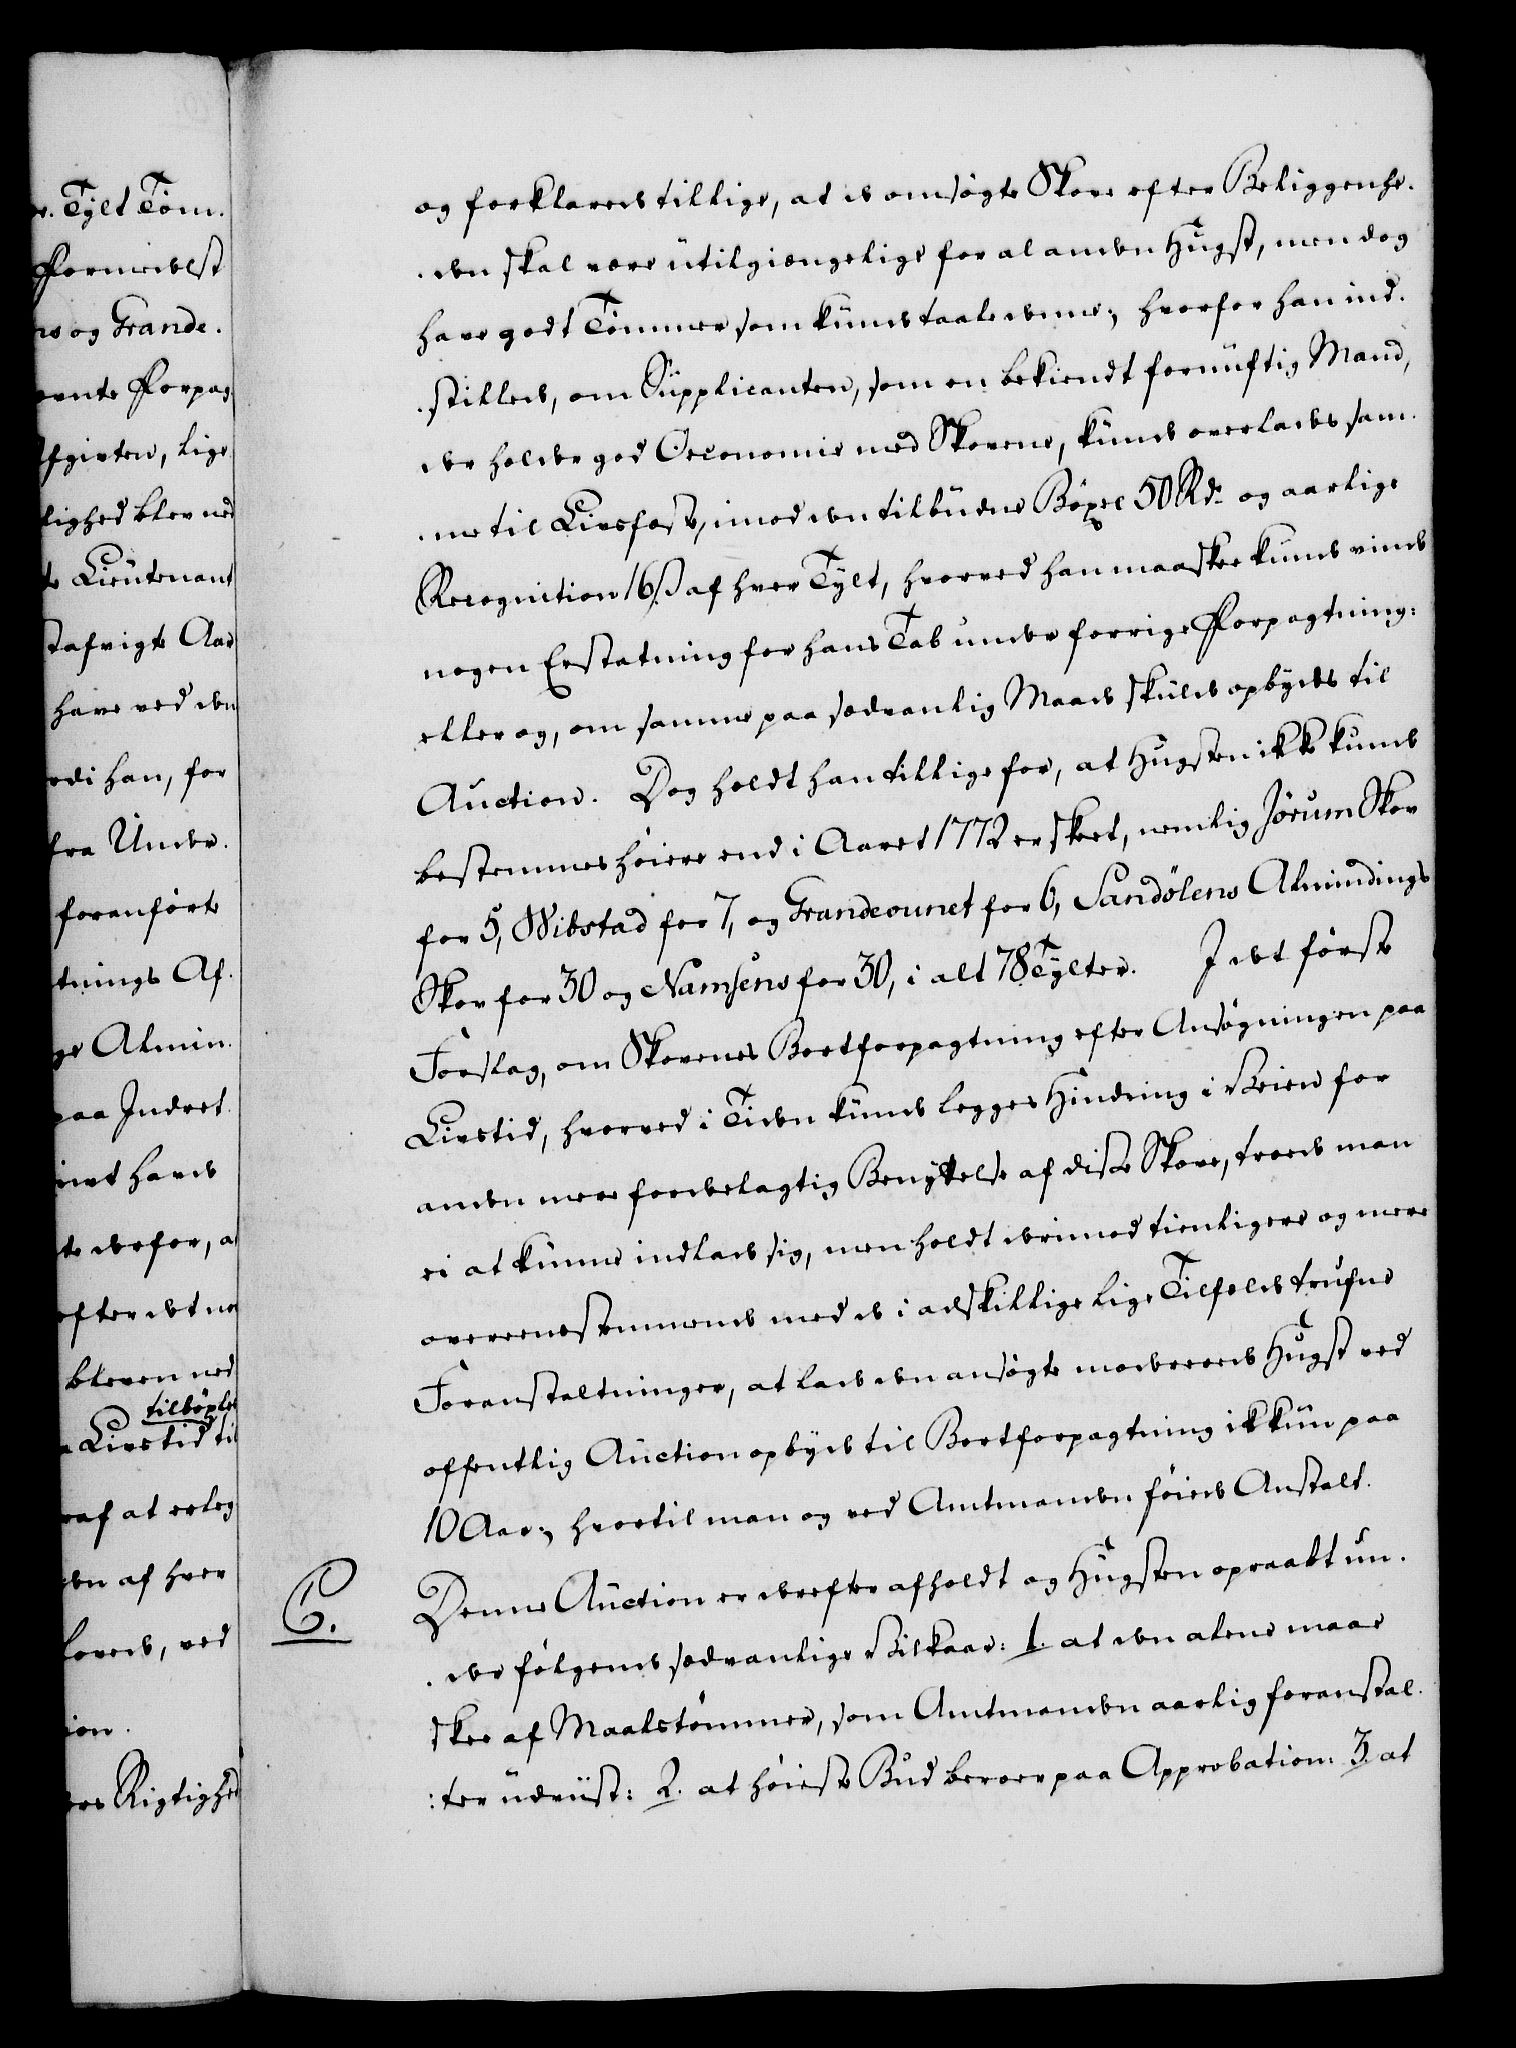 r. Tylt Töm.
Formedelst
ns og Grande.
vente Forpag
Afgivten, lige
lighed blev ned
te Lieutenant
stafvigte Aar
have ved den
rdi han, for
fra Under.
foranförte
tnings Af.
ge Almin.
paa Indret
havde
te derfor, a
efter det ne
bleven ned
tilböxle
Livstid til
raf at erleg
den af hver
lovede, ved
ion.
res Rigtighed
og forklarede tillige, at de omsögte Skove efter Beliggenhe.
.den skal være utilgiængelige for al anden Hugst, men dog
have godt Tömmer som kunde taale denne; hvorfor han ind.
.stillede, om Supplicanten, som en bekiendt fornuftig Mand,
der holder god Oeconomie med Skovene, kunde overlades sam.
.me til Livsfæste, imod den tilbudne Böxel 50 Rd. og aarlige
Recognition 16 ß af hver Tylt, hvorved han maaskee kunde vinde
nogen Erstatning for hans Tab under forrige Forpagtning:
eller og, om samme paa sædvanlig Maade skulde opbydes til
Auction. Dog holdt han tillige for, at Hugsten ikke kunde
bestemmes höiere end i Aaret 1772 er skeet, nemlig Jörum Skov
for 5, Wibstad for 7, og Grandeounet for 6, Sandölens Almindings
Skov for 30 og Namsens for 30, i alt 78 Tylter. I det förste
Forslag, om Skovenes Bortforpagtning efter Ansögningen paa
Livstid, hvorved i Tiden kunde legges Hindring i Veien for
anden mere fordelagtig Benyttelse af disse Skove, troede man
ei at kunne indlade sig, men holdt derimod tienligere og mere
overeensstemmende med de i adskillige lige Tilfælde trufne
Foranstaltninger, at lade den ansögte modererede Hugst ved
offentlig Auction opbyde til Bortforpagtning ikkun paa
10 Aar; hvortil man og ved Amtmanden föiede Anstalt.
C. Denne Auction er derefter afholdt og Hugsten opraabt un.
.der fölgende sædvanlige Vilkaar: 1. at den alene maae
skee af Maalstömmer, som Amtmanden aarlig foranstal.
:ter udviist: 2. at höieste Bud beroer paa Approbation: 3. at